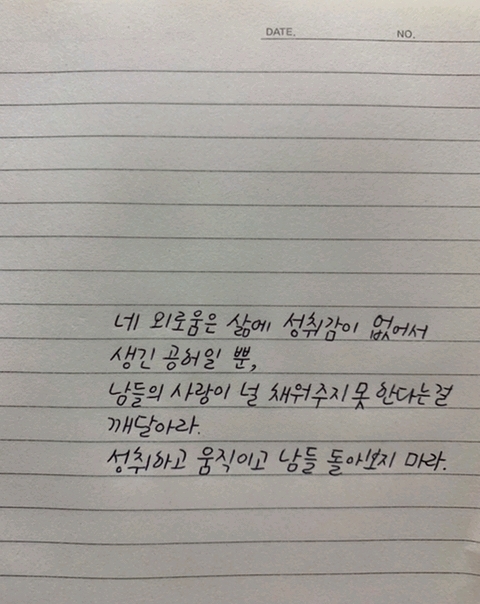 DATE.
NO.
네 외로움은 삶에 성취감이 없어서
생긴 공허일 뿐,
남들의 사랑이 널 채워주지 못 한다는걸
깨달아라.
성취하고 움직이고 남들 돌아보지 마라.